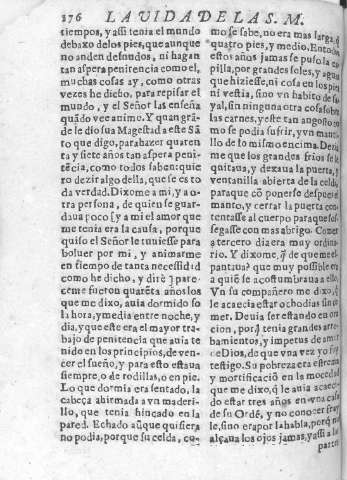 176 LA VIDA DE LA S. M.
tiempos, y assi tenia el mundo
debaxo de los pies, que aunque
no anden desnudos, ni hagan
tan aspera penitencia como el,
muchas cosas ay, como otras
vezes he dicho, para repisar el
mundo, y el Señor las enseña
quãdo vee animo. Y quan grã-
de le dio su Magestad a este Sã
to que digo, para hazer quaren
ta y siete años tan aspera peni-
tẽcia, como todos saben: quie
ro dezir algo della, que se es to
da verdad. Dixome a mi, y a o-
tra persona, de quien se guar-
daua poco (y a mi el amor que
me tenia era la causa, porque
quiso el Señor le tuuiesse para
boluer por mi, y animarme
en tiempo de tanta necessidad
como he dicho, y dirè) pare-
ceme fueron quarẽta años los
que me dixo, auia dormido so
la hora, y media entre noche, y
dia, y que este era el mayor tra-
bajo de penitencia que auia te
nido en los principios, de ven-
cer el sueño, y para esto estaua
siempre, o de rodillas, o en pie.
Lo que dormia era sentado, la
cabeça ahirmada a vn maderi-
llo, que tenia hincado en la
pared. Echado aũque quisiera
no podia, porque su celda, co-
mo se sabe, no era mas larga, q̃
quatro pies, y medio. En todos
estos años jamas se puso la ca
pilla, por grandes soles, y aguas
que hiziesse, ni cosa en los pies
ni vestia, sino vn habito de sa
yal, sin ninguna otra cosa sobre
las carnes, y este tan angosto co
mo se podia sufrir, y vn mante-
llo de lo mismo encima. Dezia
me que los grandes frios se le
quitaua, y dexaua la puerta, y
ventanilla abierta de la celda,
para que cõ ponerse despues el
manto, y cerrar la puerta con
tentasse al cuerpo para que sos-
segasse con mas abrigo. Comer
a tercero dia era muy ordina-
rio. Y dixome, q̃ de que me es-
pantaua? que muy possible era
a quiẽ se acostumbraua a ello.
Vn su compañero me dixo, q̃
le acaecia estar ocho dias sin co
mer. Deuia ser estando en ora-
cion, porq̃ tenia grandes arre-
batamientos, y impetus de amor
de Dios, de que vna vez yo fuy
testigo. Su pobreza era estrema
y mortificaciõ en la mocedad
que me dixo, q̃ le auia acaeci-
do estar tres años en vna casa
de su Ordẽ, y no conocer fray
le, sino era por la habla, porque no
alçaua los ojos jamas, y assi a las
partes